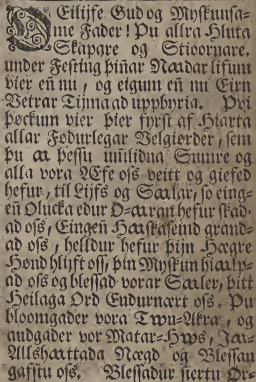 OEilijfe Gud og Myskunsa-
me Fader! Þu allra Hluta
Skapare og Stioornare.
under Festing þinar Nædar lifum
vier eñ nu, og eigum eñ nu Eirn
Vetrar Tijma ad uppbyria. Þvi
þøckum vier þier fyrst af Hiarta
allar Fødurlegar Velgiørder, sem
þu æ þessu uñlidna Sumre og
alla vora Æfe oss veitt og giefed
hefur, til Lijfs og Sælar, so eing-
eñ Olucka edur O-æran hefur skad-
ad oss, Eingeñ Hæskaseind grand-
ad oss, helldur hefur þijn Hægre
Hønd hlijft oss, þin Myskun hiælp-
ad oss og blessad vorar Sæler, þitt
Heilaga Ord Endurnært oss. Þu
bloomgader vora Twn-Akra, og
audgader vor Matar-Hws, Jar-
Allshættada Nægd og Blessan
gafstu oss. Blessadur siertu Dr-